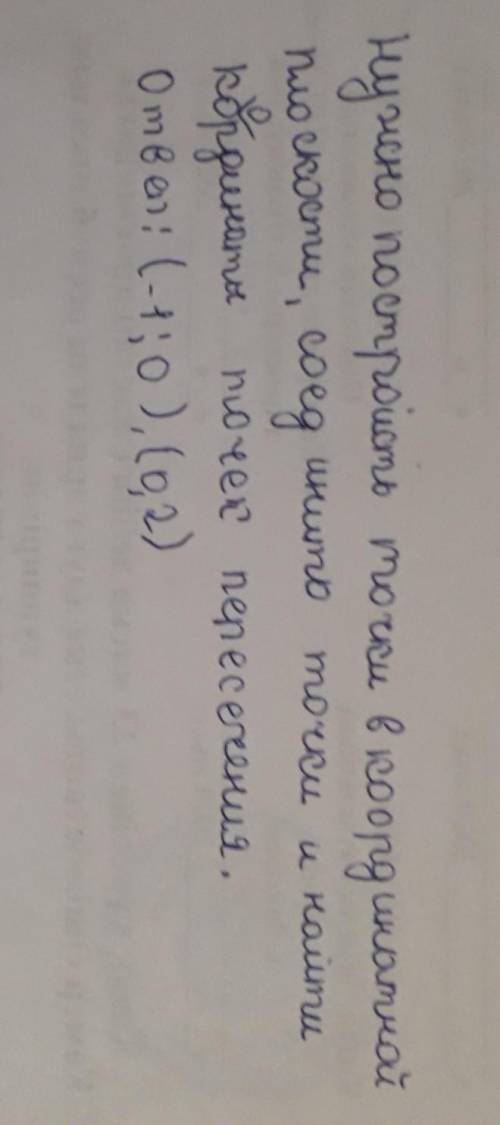 Нужно построить точки в координатной
плоскости, соединить точки и найти
координаты точек пересечения.
Ответ: (-1; 0), (0, 2)